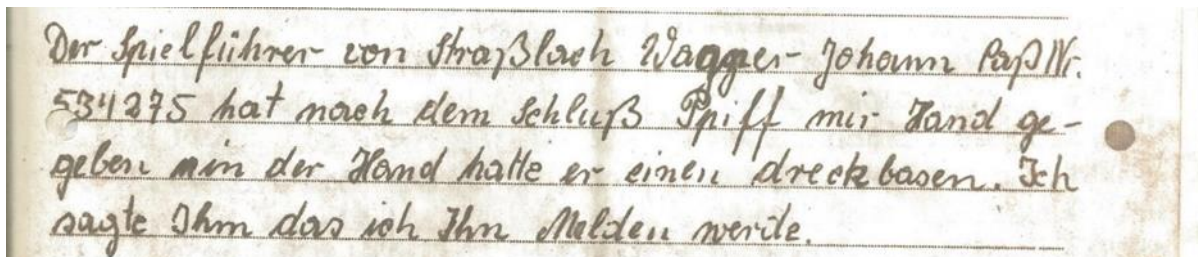 Der Spielführer von Straßlach Wagner Johann Paß Nr.
534275 hat nach dem Schluß Pfiff mir Hand ge-
geben in der Hand hatte er einen dreckbasen. Ich
sagte Ihm das ich Ihn Melden werde.